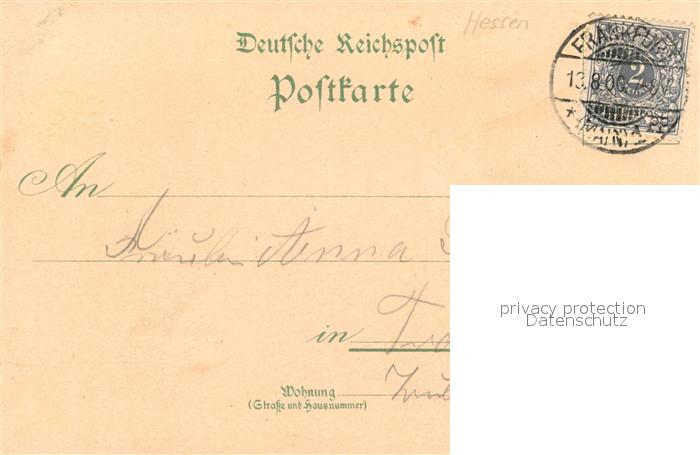 Hessen
Deutsche Reichspost
Postkarte
FRANKFURT
2
13.8.00.7-8N.
* (MAIN) 1
An
Fräulein Anna
in
Wohnung
(Straße und Hausnummer)
privacy protection
Datenschutz